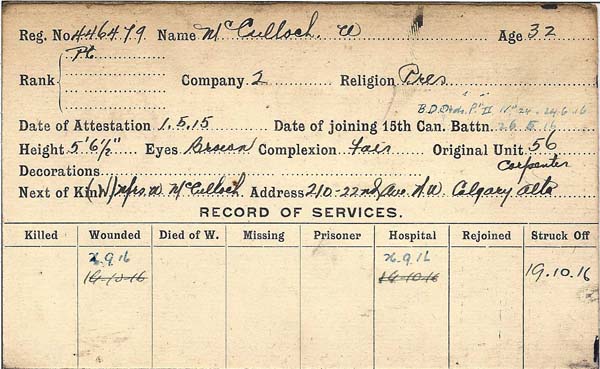 Reg. No. 446479 Name McCulloch. W Age 32
Pt.
Rank Company 2 Religion Pres
B.D. Ords. Pt II 11" 24. 24.6.16
Date of Attestation 1.5.15 Date of joining 15th Can. Battn. 26.5.16
Height 5'6½" Eyes Brown Complexion Fair Original Unit 56
Decorations Carpenter
Next of Kin (W) Mrs. W McCulloch. Address 210-22nd Ave. N.W. Calgary Alta
RECORD OF SERVICES.
Killed Wounded Died of W. Missing Prisoner Hospital Rejoined Struck Off
26.9.16 26.9.16
19.10.16 19.10.16 19.10.16